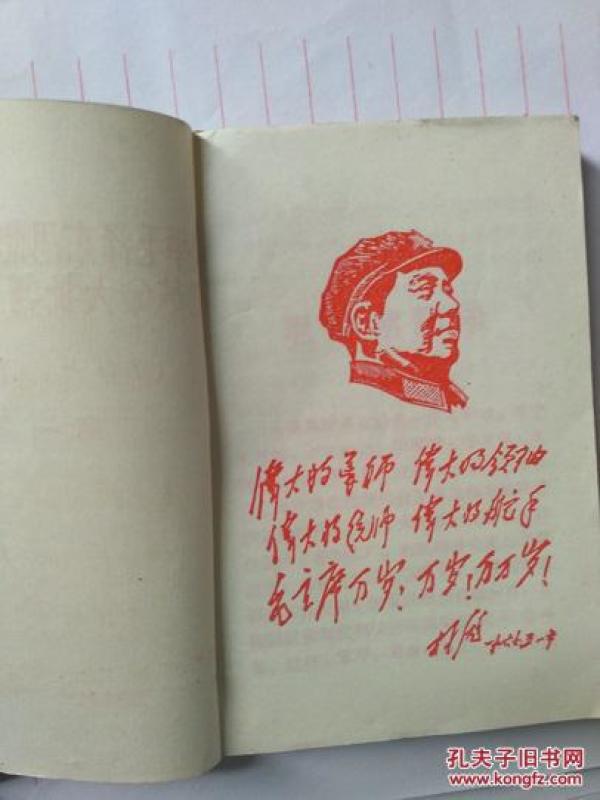 偉大的导师 偉大的領袖
偉大的统帅 偉大的舵手
毛主席万岁！万岁！万万岁！
林彪 一九六七、五、一、
孔夫子旧书网
www.kongfz.com